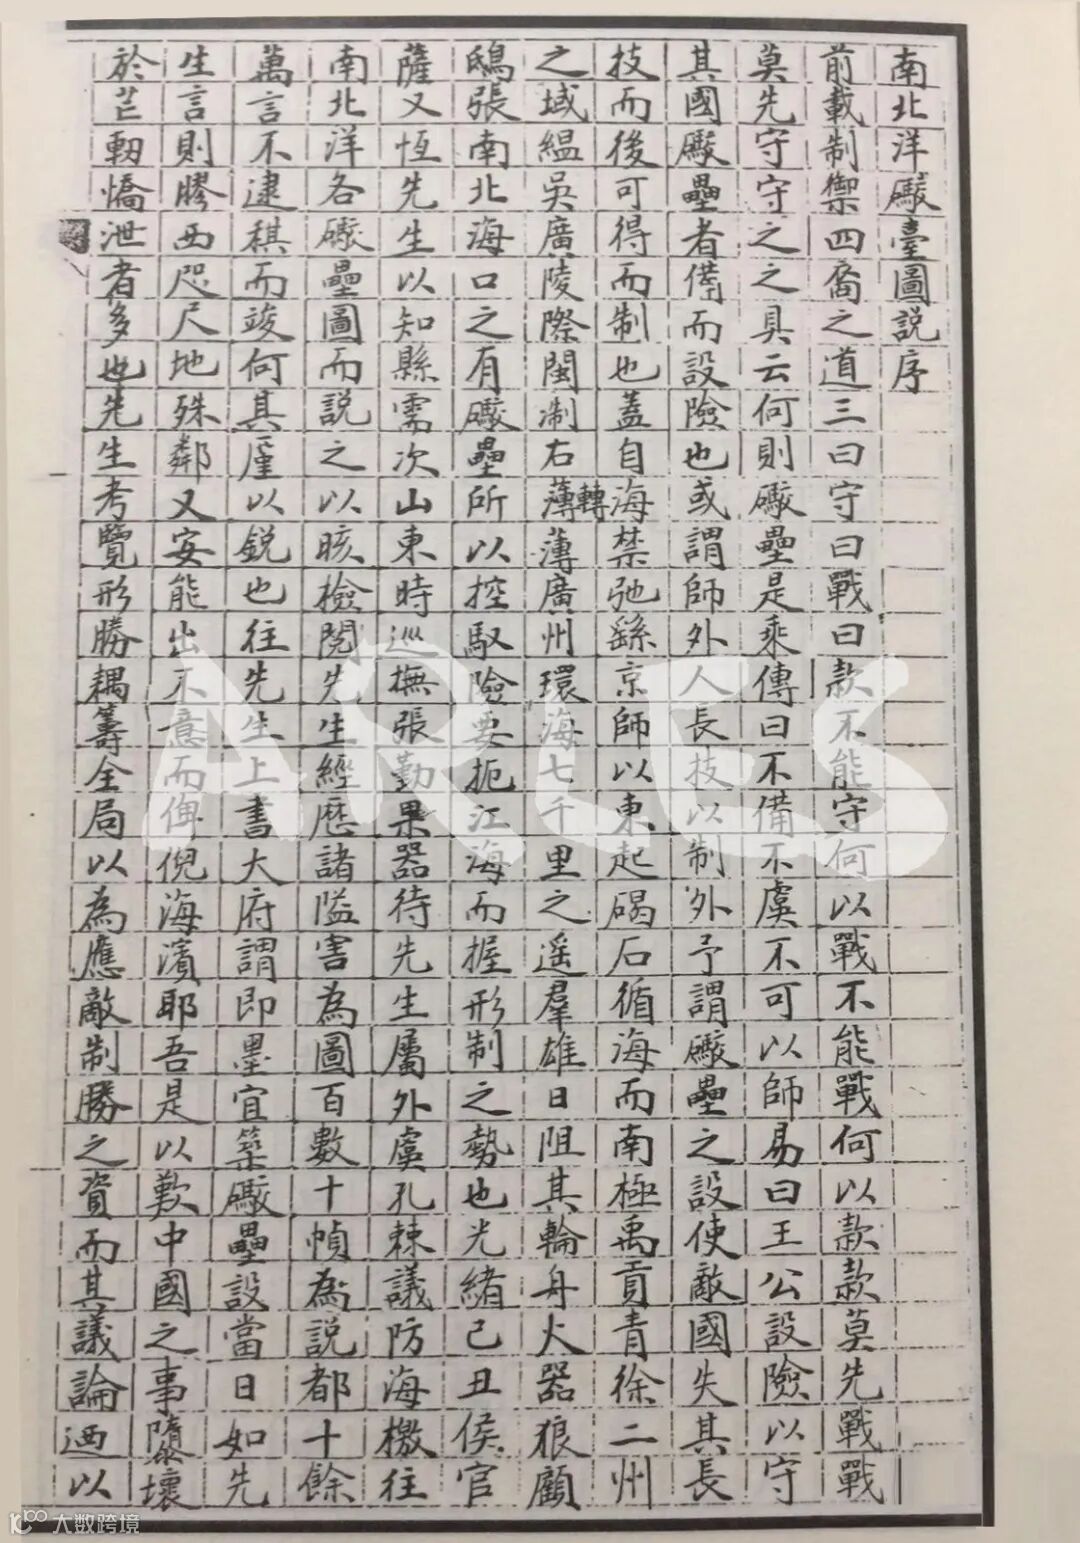 南北洋礮臺圖說序
前載制禦四裔之道三曰守曰戰曰款不能守何以戰不能戰何以款款莫先戰戰
莫先守守之之具云何則礮壘是乘傳曰不備不虞不可以師易曰王公設險以守
其國礮壘者備而設險也或謂師外人長技以制外予謂礮壘之設使敵國失其長
技而後可得而制也蓋自海禁弛繇京師以東起碣石循海而南極禹貢青徐二州
之域緼吳廣陵際閩淛右薄轉薄廣州環海七千里之遥羣雄日阻其輪舟火器狼顧
鴟張南北海口之有礮壘所以控馭險要扼江海而握形制之勢也光緒己丑侯官
薩又恆先生以知縣需次山東時巡撫張勤果器待先生屬外虞孔棘議防海檄往
南北洋各礮壘圖而說之以晐檢閱先生經歷諸隘害為圖百數十幀為說都十餘
萬言不逮稘而竣何其厪以銳也往先生上書大府謂即墨宜築礮壘設當日如先
生言則膠西咫尺地殊鄰又安能出不意而俾倪海濱耶吾是以歎中國之事隳壞
於芒軔憍泄者多也先生考覽形勝耦籌全局以為應敵制勝之資而其議論迺以
大数跨境
ARLES